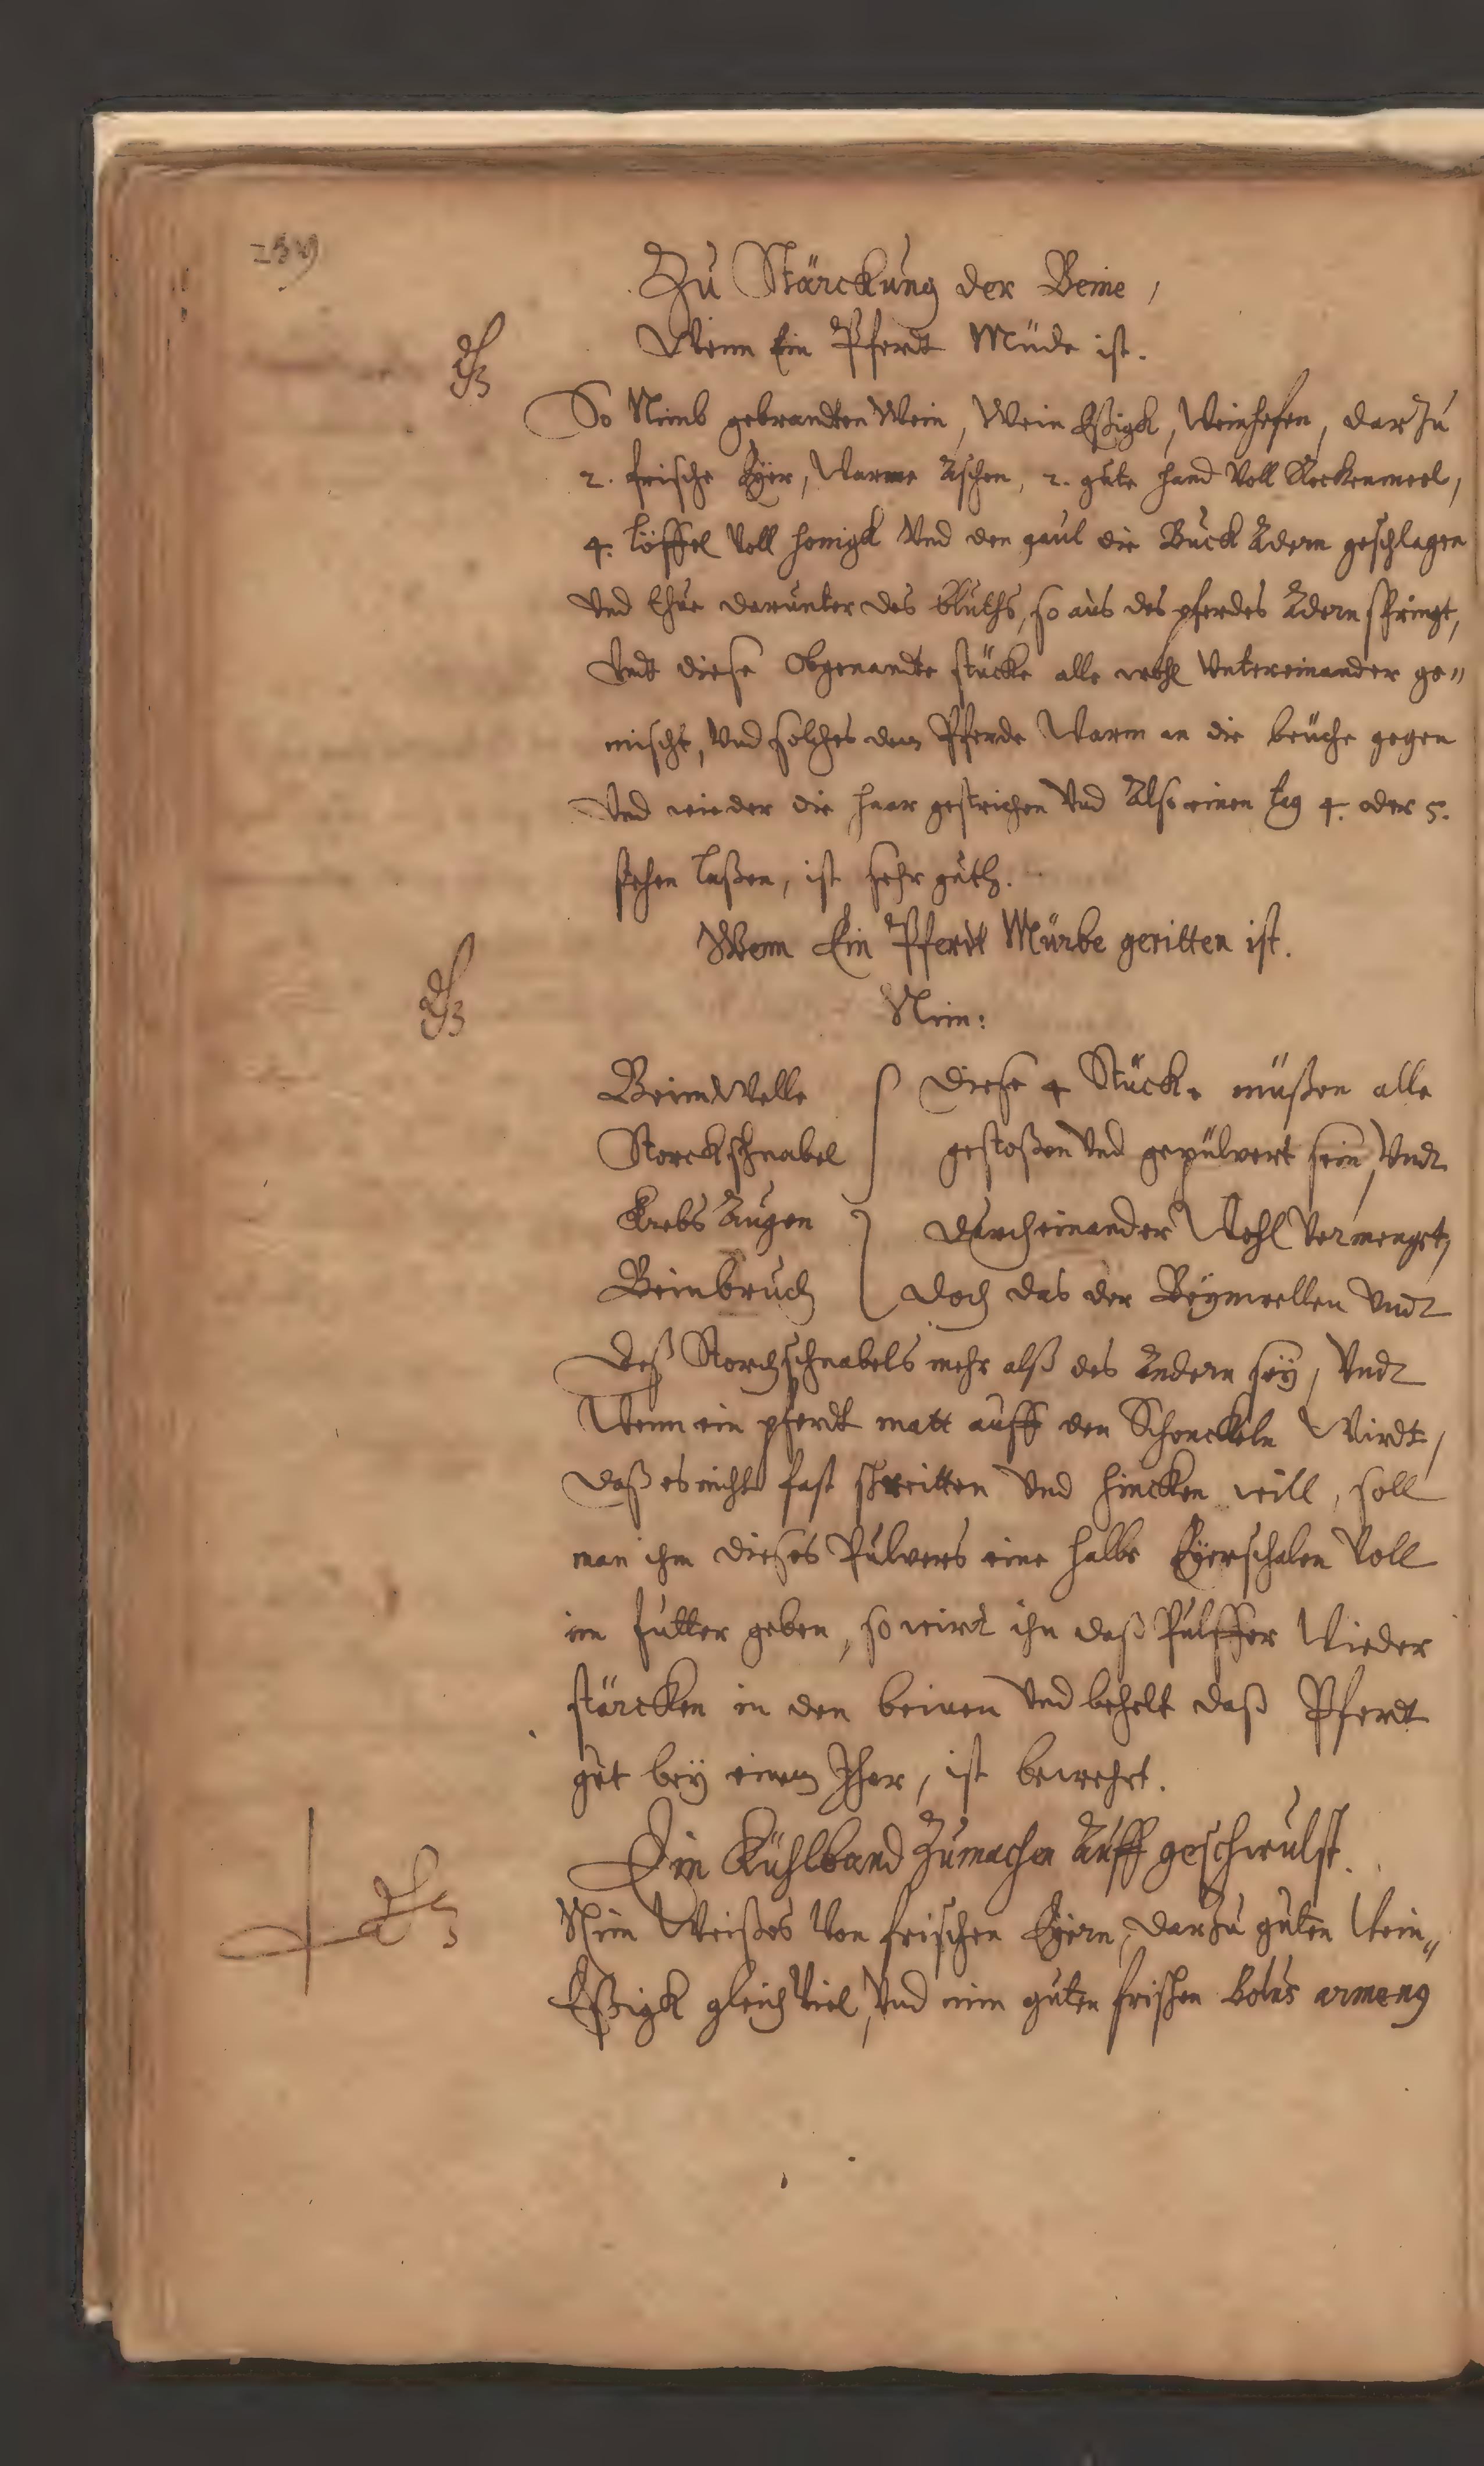 Zu Stärckung der Beine,
Wenn Ein Pferdt Müde ist.
So Nimb gebrandten Wein, Wein Eßigk, Weinhefen, dar Zu
2. frische Eÿer, Warme Aschen, 2. gute hand Voll Rockenmeel,
4. löffel Voll honigk Vnd den gaul die Buck Adern geschlagen
Vnd thue darunter des bluths, so aus des pferdes Adern springt,
Vndt diese Obgenandte stücke alle wohl Vntereinander ge"
mischt, Vnd solches dem Pferde Warm an die beüche gegen
Vnd wieder die haar gestrichen Vnd Also einen tag 4. oder 5.
stehen laßen, ist sehr guth.
Wenn Ein Pferdt Mürbe geritten ist.
Nim:
BeimWelle Diese 4 Stücke müßen alle
Storckschnabel gestoßen Vnd gepülvert sein, Vndt
Krebs Augen durcheinander Wohl Vermenget,
Beinbruch doch das der Beÿmwellen Vndt
deß Storchschnabels mehr alß des Andern seÿ, Vndt
Wenn ein pferdt matt auff den Schenckeln Wirdt,
daß es nicht fast schreitten Vnd hincken will, soll
man ihm dieses Pulvers eine halbe Eÿerschalen Voll
im futter geben, so wirt ihn daß Pulffer Wieder
stärcken in den beinen Vnd behelt daß Pferdt
gut beÿ einem Jhar, ist bewehrt.
Ein Kühlband Zumachen Auff geschwulst.
Nim Weißes Von frischen Eÿern, darZu guten Wein"
Eßigk gleich Viel, Vnd nim guten frischen bolus armenq